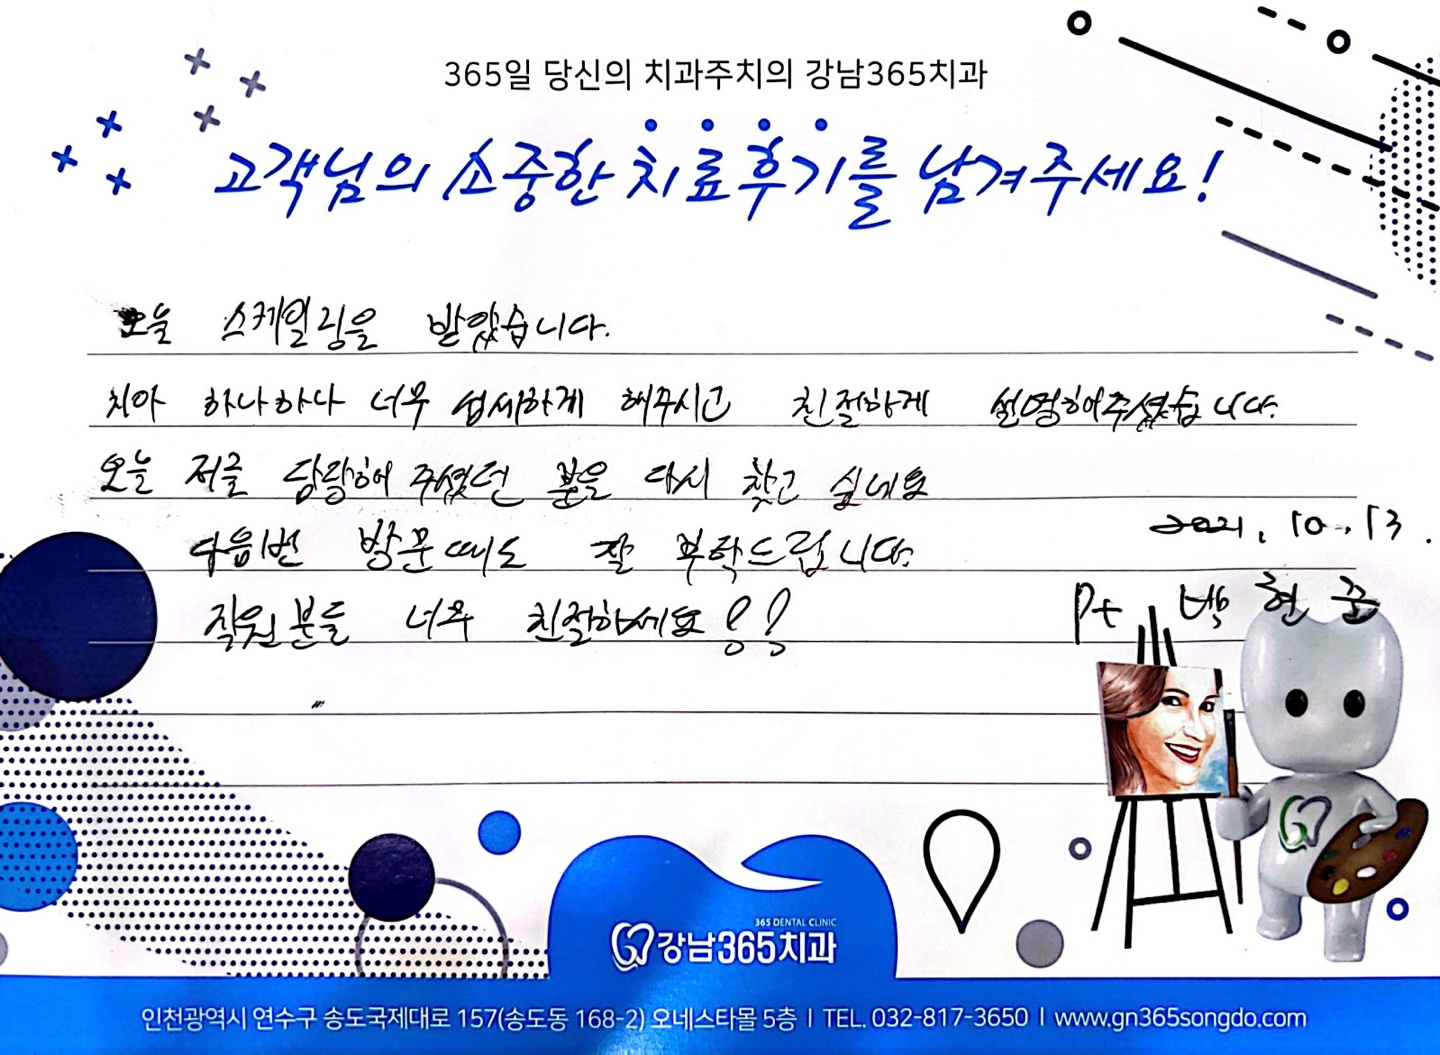 365일 당신의 치과주치의 강남365치과
고객님의 소중한 치료후기를 남겨주세요!
오늘 스케일링을 받았습니다.
치아 하나하나 너무 섬세하게 해주시고 친절하게 설명해주셨습니다.
오늘 저를 담당해 주셨던 분을 다시 찾고 싶네요
다음번 방문때도 잘 부탁드립니다.
2021. 10. 13.
직원분들 너무 친절하세요!!
Pt 박현준
365 DENTAL CLINIC
강남365치과
인천광역시 연수구 송도국제대로 157(송도동 168-2) 오네스타몰 5층 I TEL. 032-817-3650 I www.gn365songdo.com